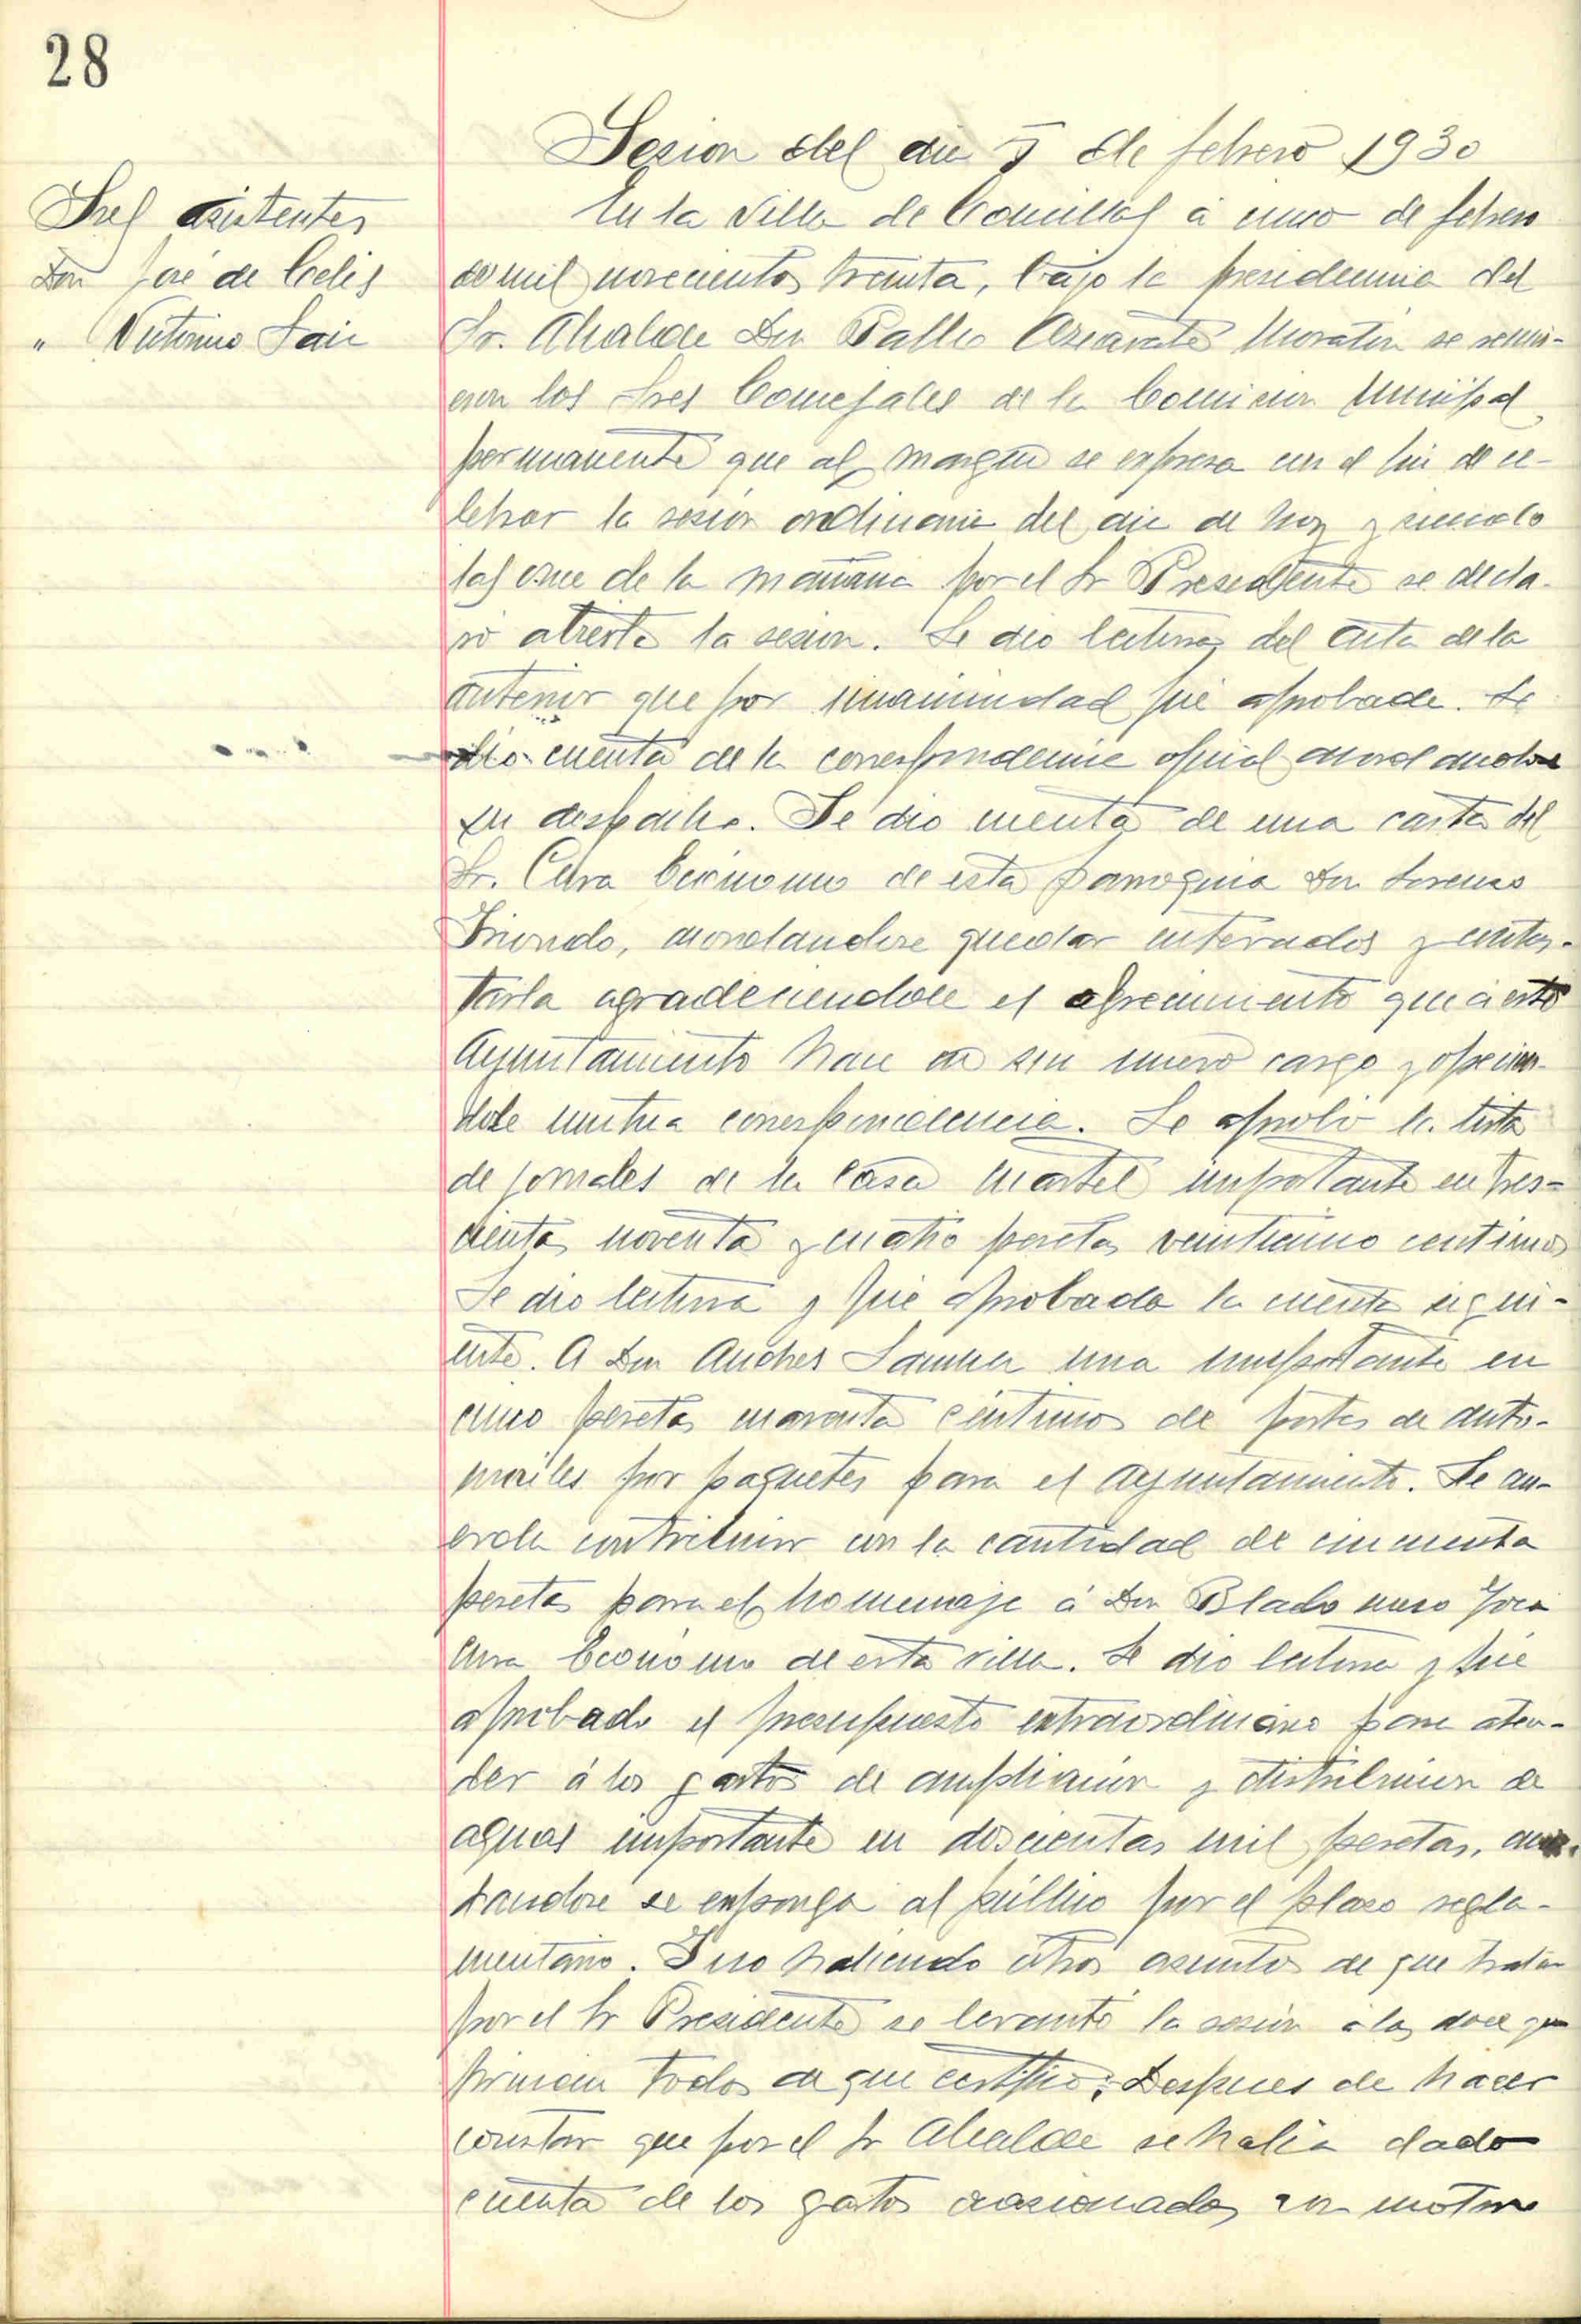 28
Sesion del dia 5 de febrero 1930
Sres asistentes
Don José de Celis
" Victorino Saiz
En la Villa de Comillas á cinco de febrero
de mil novecientos treinta, bajo la presidencia del
Sr. Alcalde Don Pablo Azcarate Moratin se reuni-
eron los Sres Concejales de la Comision Municipal
permanente que al margen se expresa con el fin de ce-
lebrar la sesión ordinaria del dia de hoy y siendo
las once de la mañana por el Sr Presidente se decla-
ró abierta la sesion. Se dio lectura del acta de la
anterior que por unanimidad fué aprobada. Se
dio cuenta de la correspondencia oficial acordandose
su despacho. Se dio cuenta de una carta del
Sr. Cura Ecónomo de esta parroquia Don Lorenzo
acordandose quedar enterados y contes-
tarla agradeciendole el ofrecimiento que á este
Ayuntamiento hace de su nuevo cargo y ofrecien-
dole mutua correspondencia. Se aprobó la lista
de jornales de la Casa Cuartel importante en tres-
cientas noventa y cuatro pesetas veinticinco centimos
Se dio lectura y fué aprobada la cuenta sigui-
ente. A Don Andres una importante en
cinco pesetas cuarenta céntimos de portes de auto-
moviles por paquetes para el Ayuntamiento. Se acu-
erda contribuir con la cantidad de cincuenta
pesetas para el homenaje á Don
Cura Ecónomo de esta villa. Se dio lectura y fué
aprobado el presupuesto extraordinario para aten-
der á los gastos de ampliación y distribucion de
aguas importante en doscientas mil pesetas,
se exponga al público por el plazo regla-
mentario. Y no habiendo otros asuntos de que tratar
por el Sr Presidente se levantó la sesión á las doce que
firman todos de que certifico; Despues de hacer
constar que por el Sr Alcalde se habia dado
cuenta de los gastos ocasionados con motivo